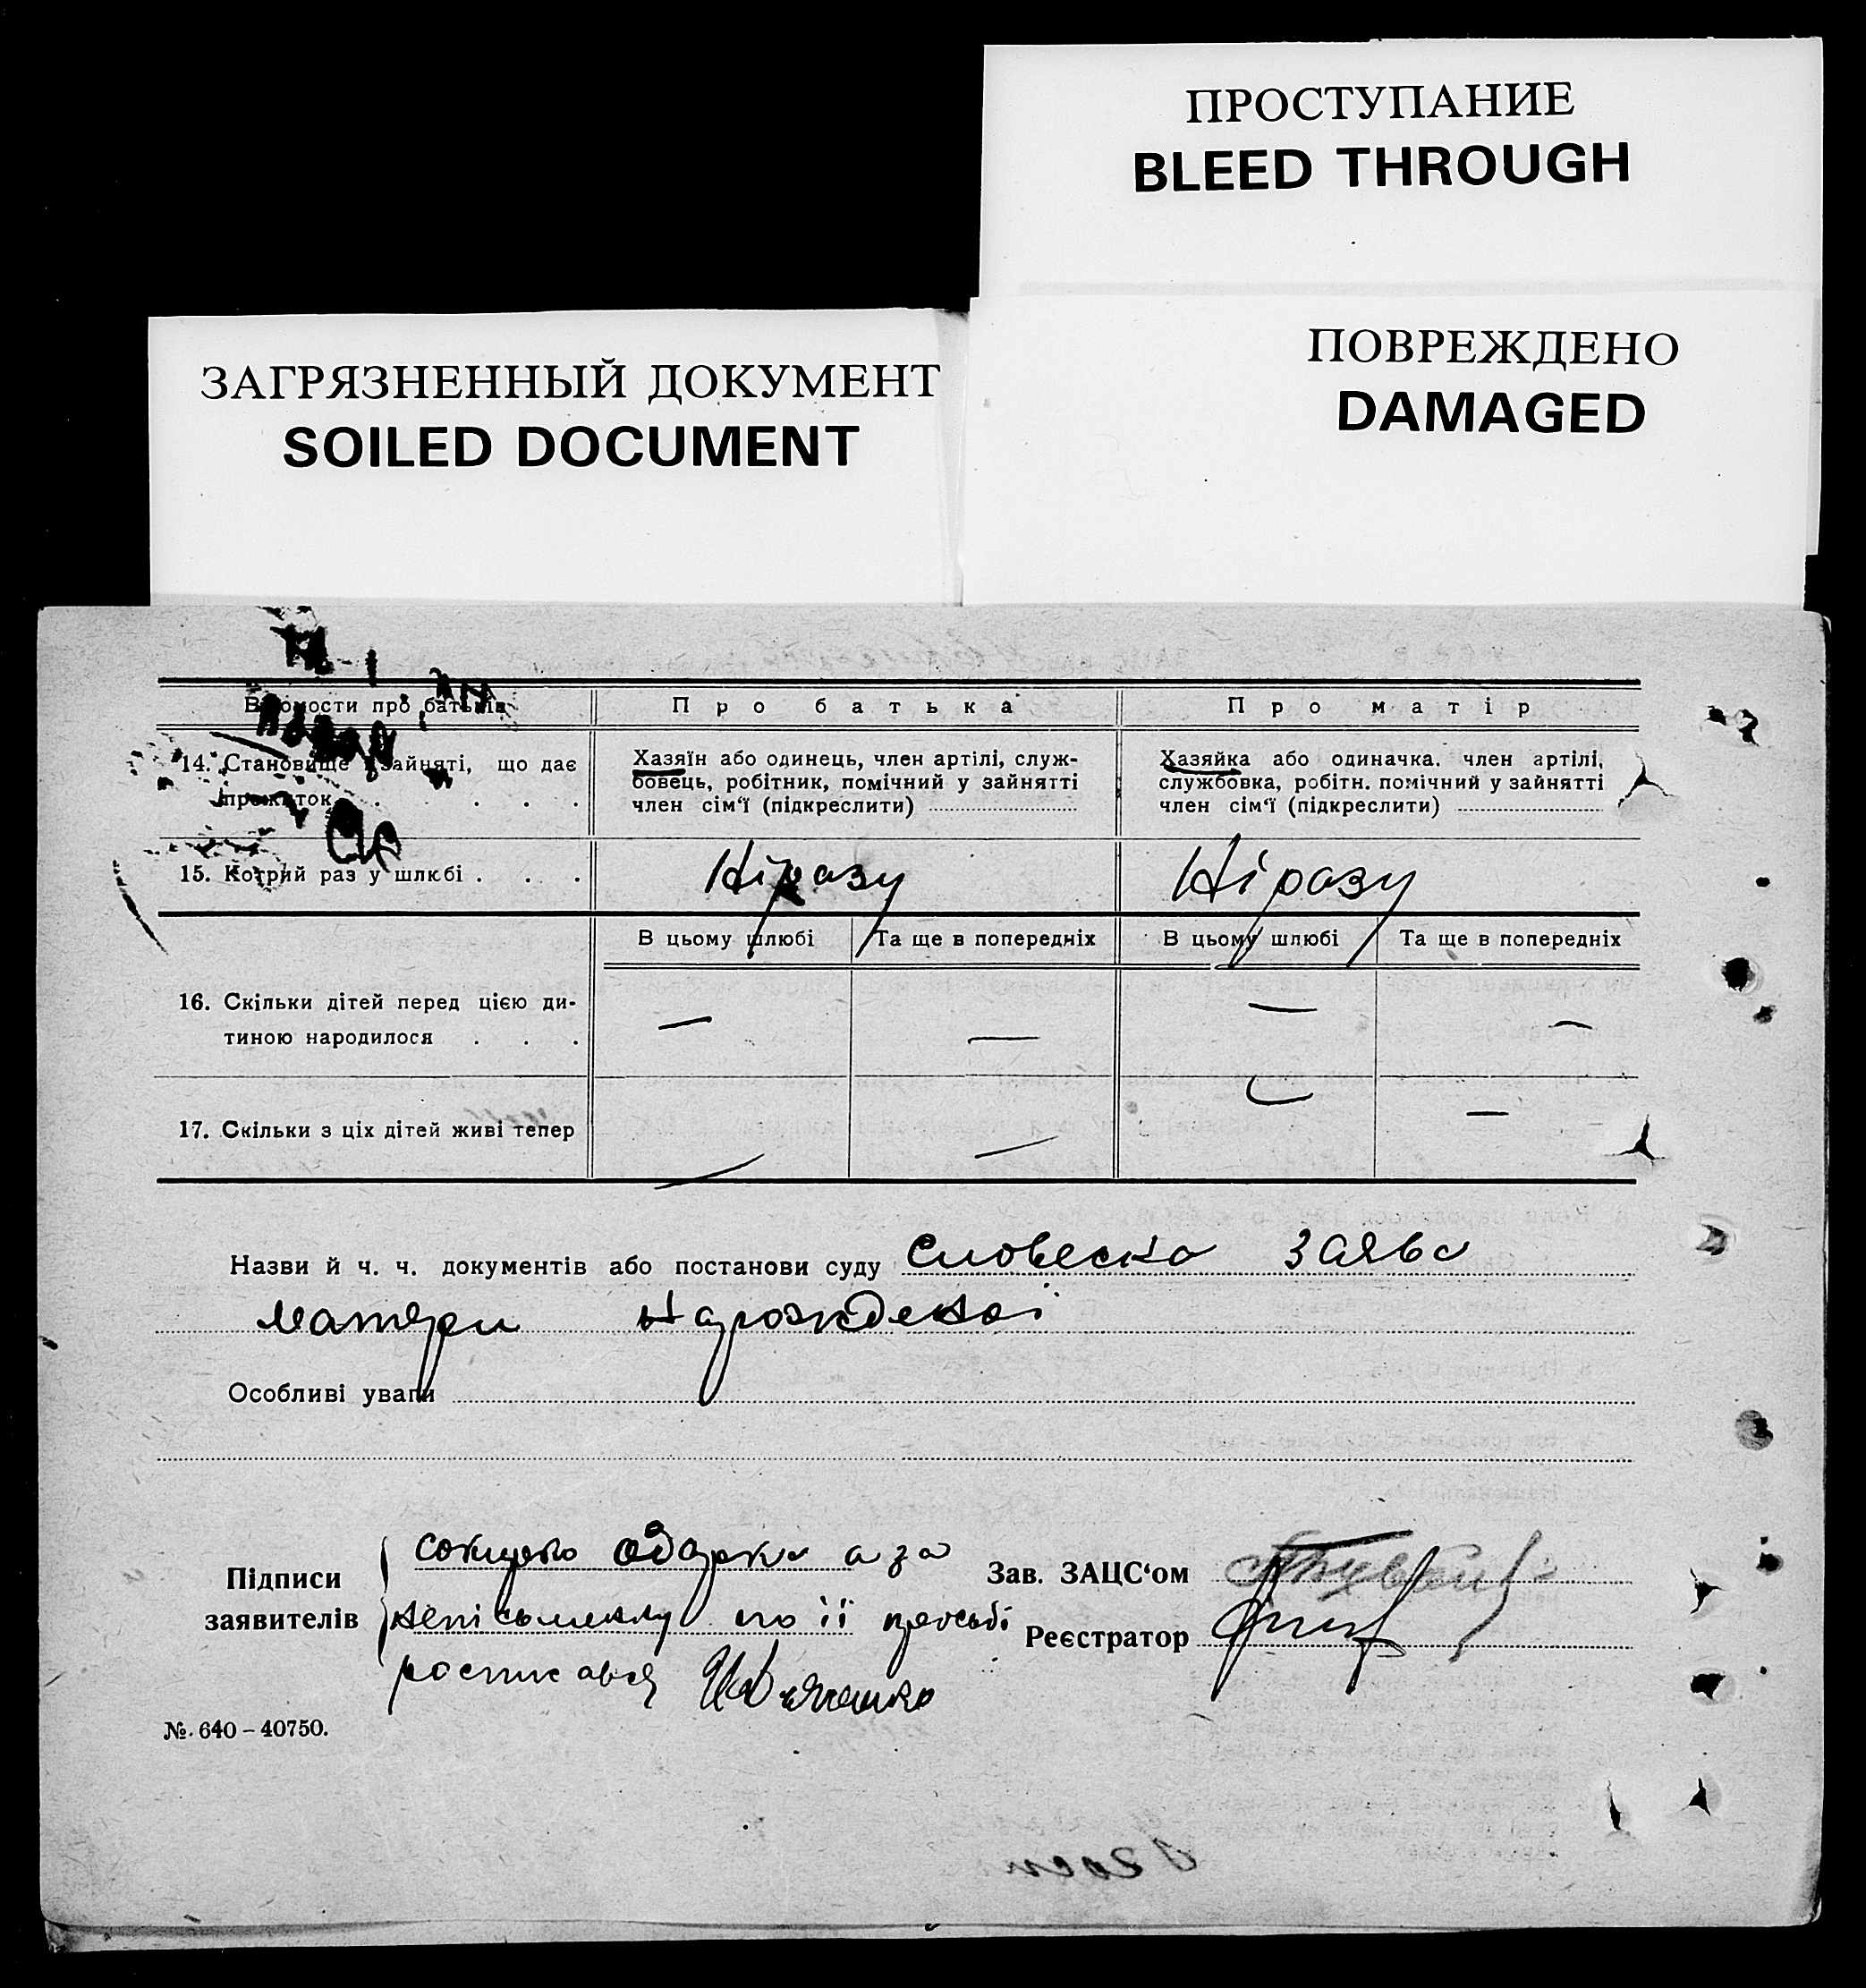 ПРОСТУПАНИЕ
BLEED THROUGH
ПОВРЕЖДЕНО
DAMAGED
ЗАГРЯЗНЕННЫЙ ДОКУМЕНТ
SOILED DOCUMENT
Відомости про батьків
Про батька
Про матір
14. Становище в зайняті, що дає
прожиток . . . .
Хазяїн або одинець, член артілі, служ-
бовець, робітник, помічний у зайнятті
член сім'ї (підкреслити)
Хазяйка або одиначка, член артілі,
службовка, робітн. помічний у зайнятті
член сім'ї (підкреслити)
15. Котрий раз у шлюбі . . .
Ніразу
Ніразу
В цьому шлюбі
Та ще в попередніх
В цьому шлюбі
Та ще в попередніх
16. Скільки дітей перед цією ди-
тиною народилося . . .
— — — —
17. Скільки з ціх дітей живі тепер
— — — —
Назви й ч. ч. документів або постанови суду Словесна заява
матери
Особливі уваги
Підписи
заявителів
Одарка а за
неписьменну по її просьбі
росписався
Зав. ЗАЦС'ом
Реєстратор
№. 640 – 40750.